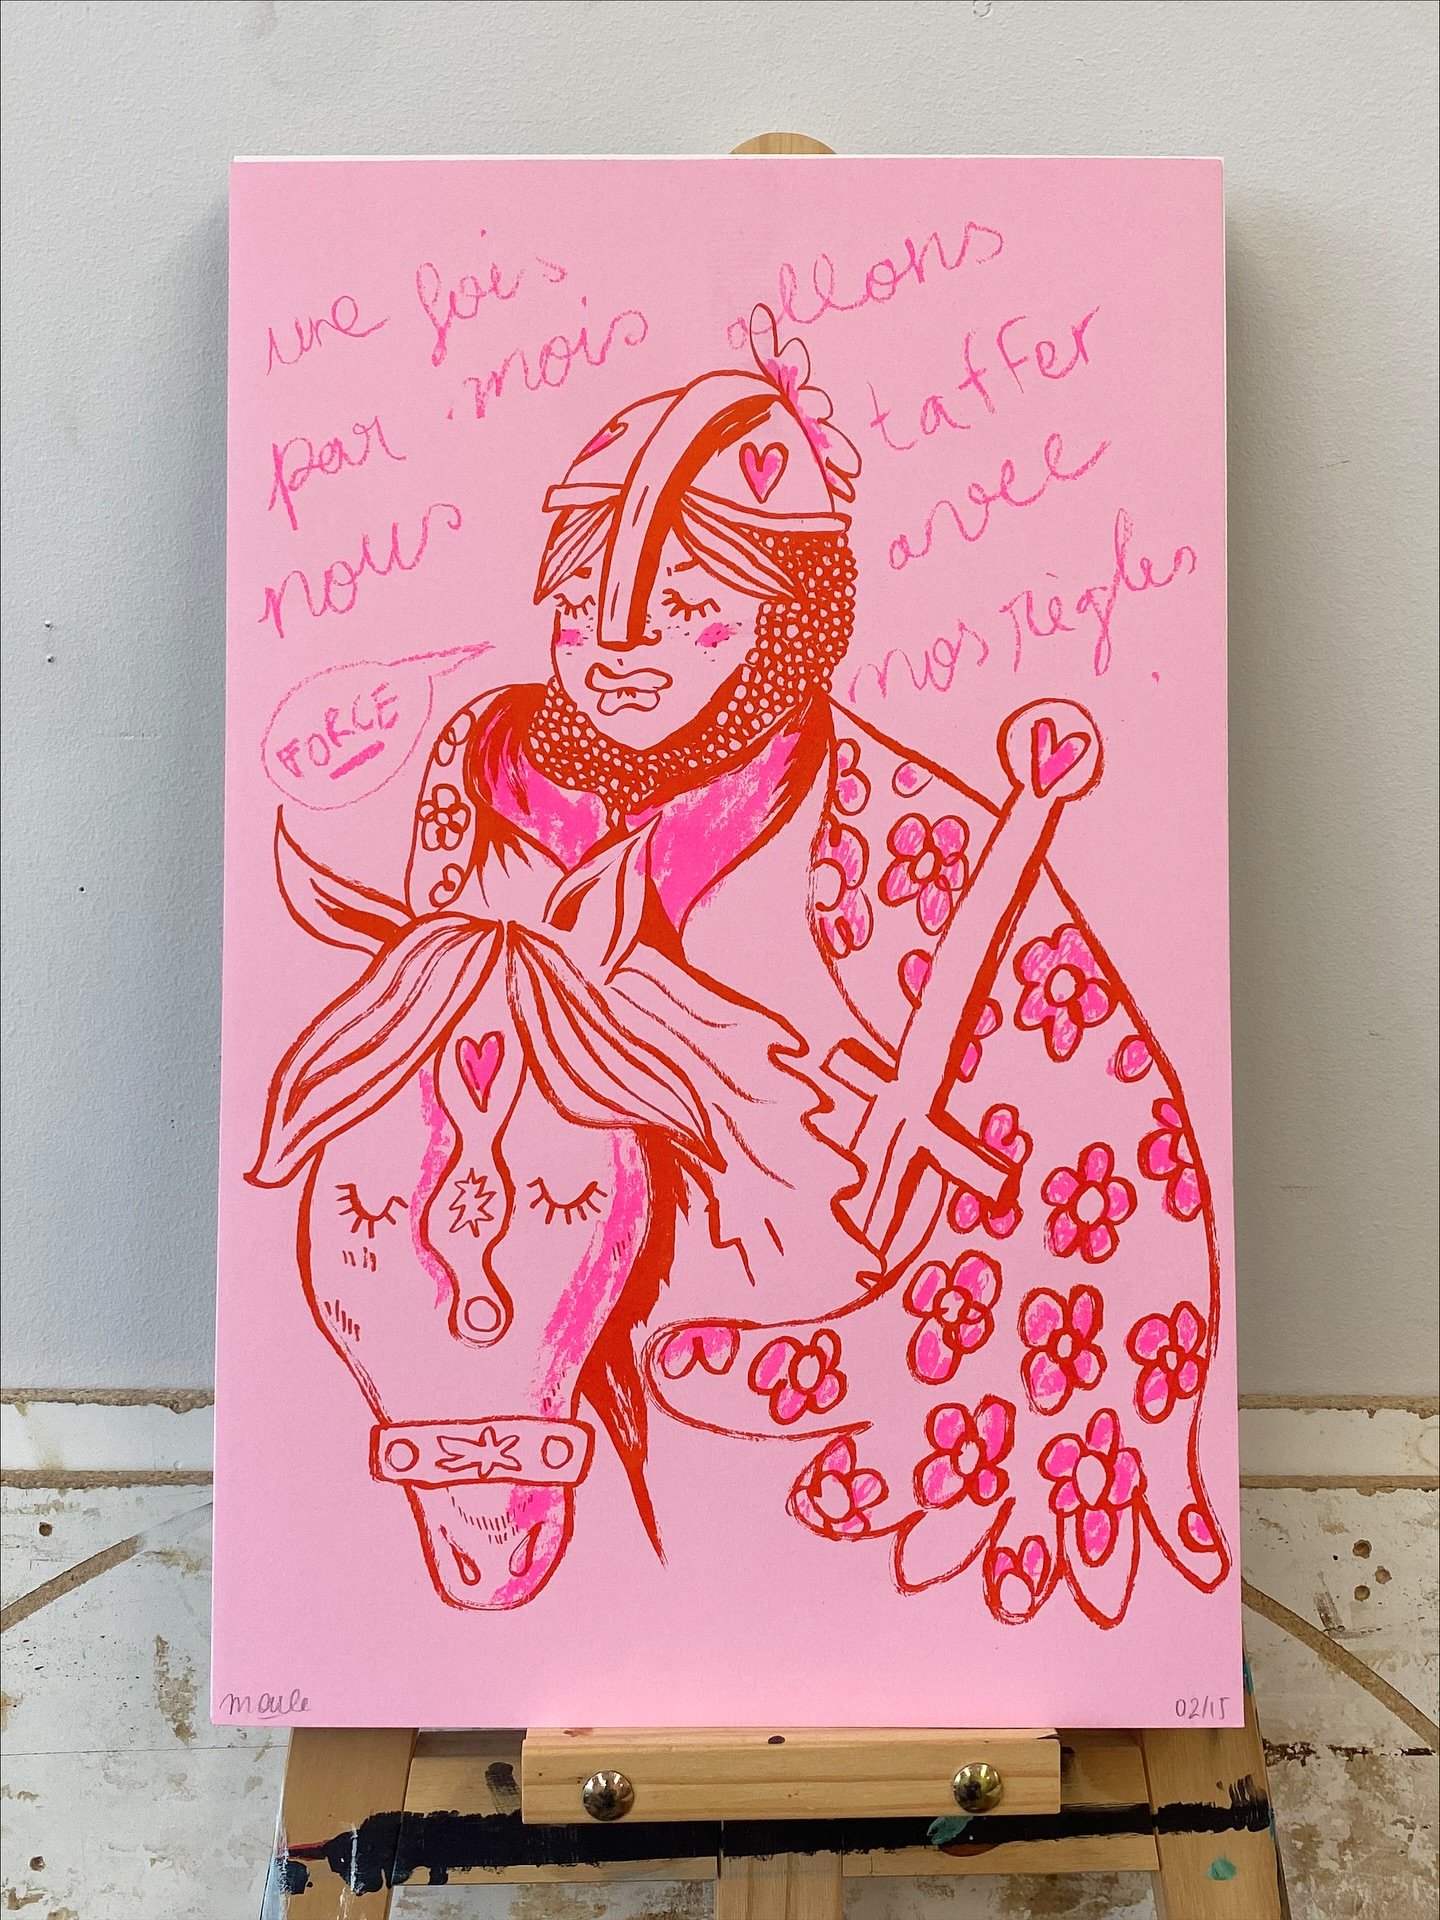 une fois
par mois
nous
allons
taffer
avec
nos règles.
FORCE
moule
02/15